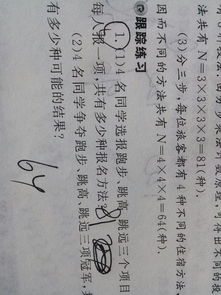 数原理,可得出不同的投
法共有 N=3×3×3×3=81(种).
(3)分三步,每位旅客都有 4 种不同的住宿方法,
因而不同的方法共有 N=4×4×4=64(种).
跟踪练习
1. (1)4 名同学选报跑步、跳高、跳远三个项目
每人报一项,共有多少种报名方法?
(2)4 名同学争夺跑步、跳高、跳远三项冠军,
有多少种可能的结果?
64